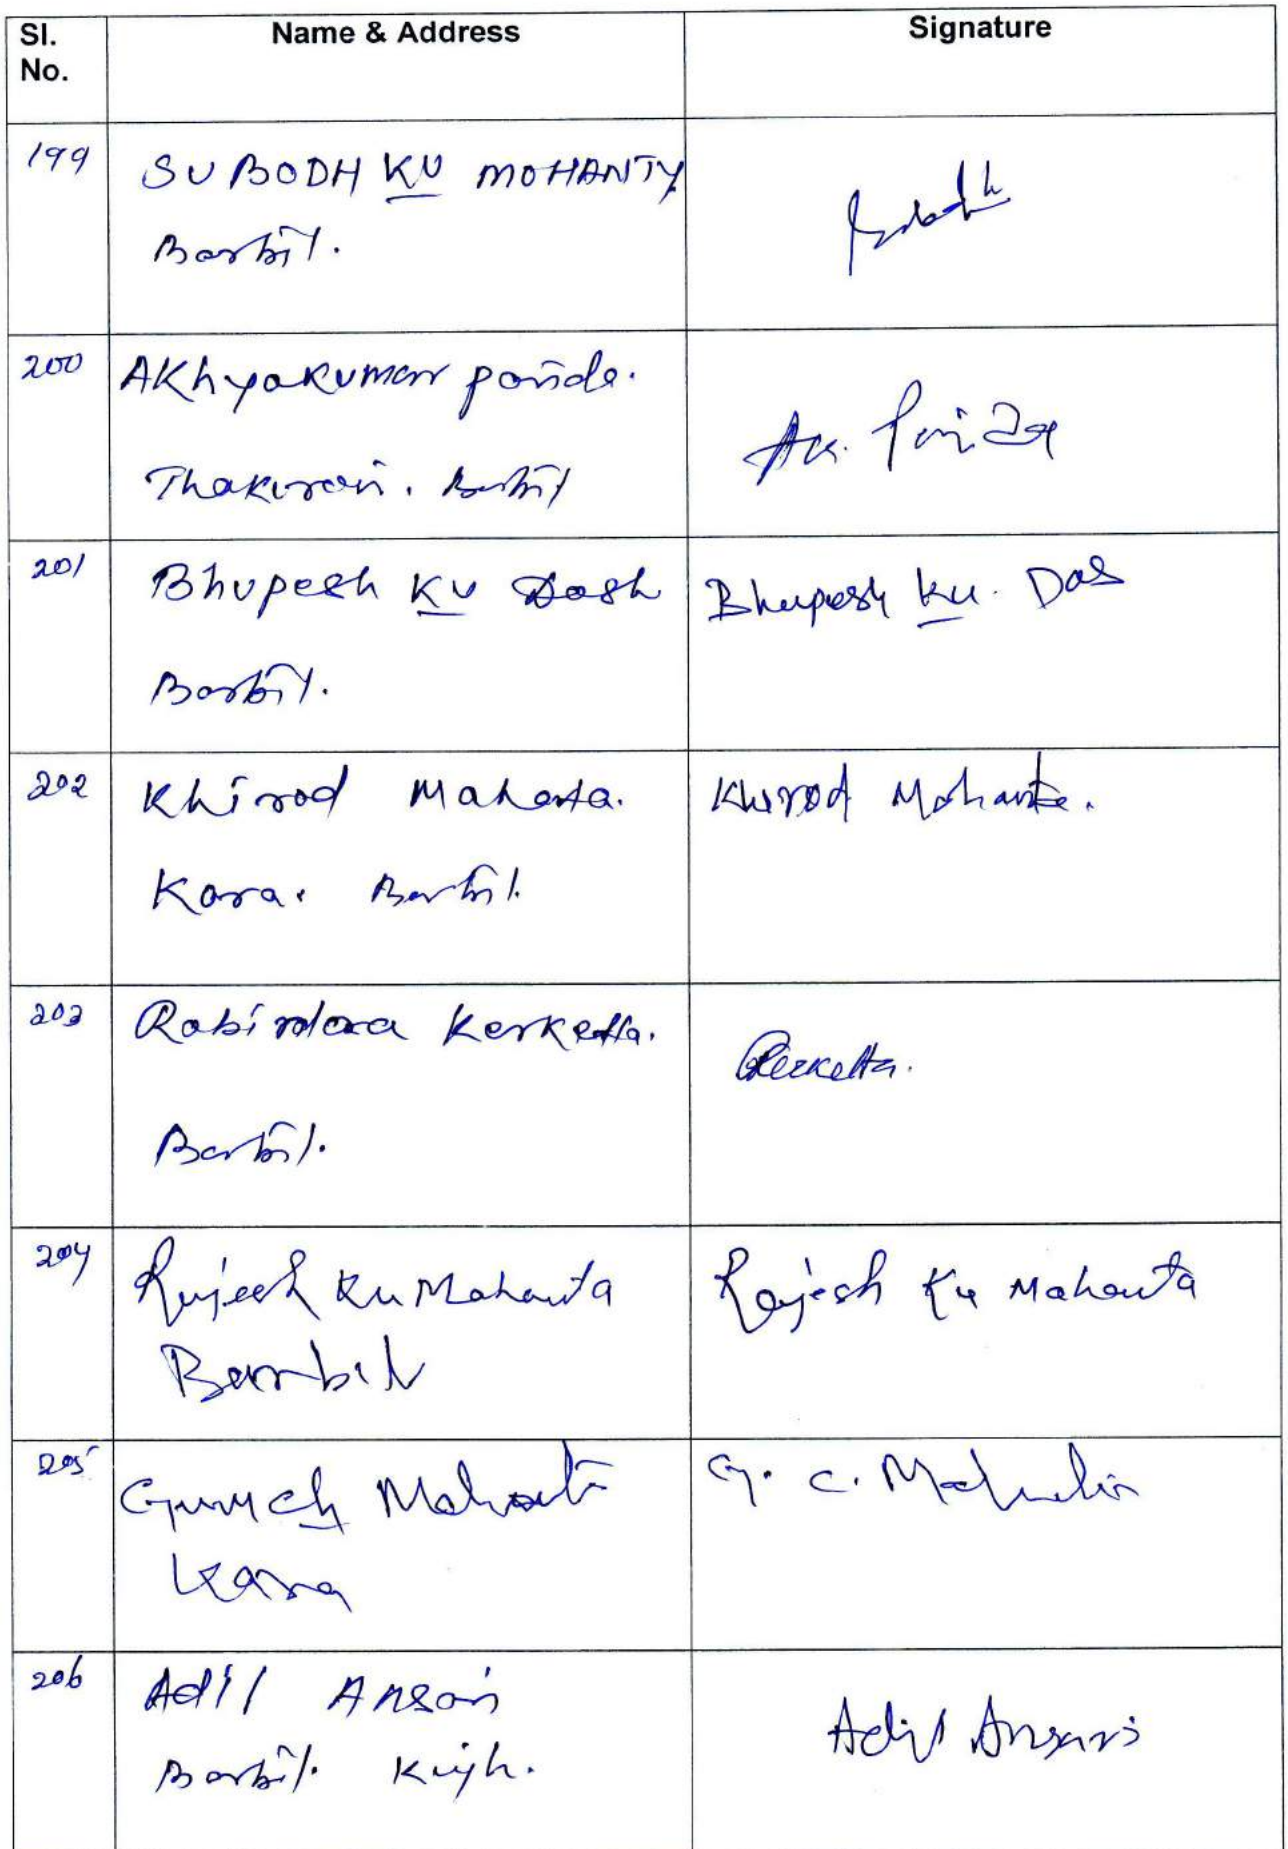 Sl. No. Name & Address Signature
199 SUBODH KU MOHANTY
Barbil.
Subodh
200 AKhyakumar parida.
Thakurani. Barbil
Ak. Parida
201 Bhupesh KU Dash
Barbil.
Bhupesh Ku. Das
202 Khirod Mahanta.
Kara. Barbil.
Khirod Mohanta.
203 Rabindara Kerketta.
Barbil.
Rkerketta.
204 Rajesh Ku Mahanta
Barbil
Rajesh Ku Mahanta
205 Guru Ch Mahanta
Kara
G. C. Mahanta
206 Adil Ansari
Barbil. Kujh.
Adil Ansari